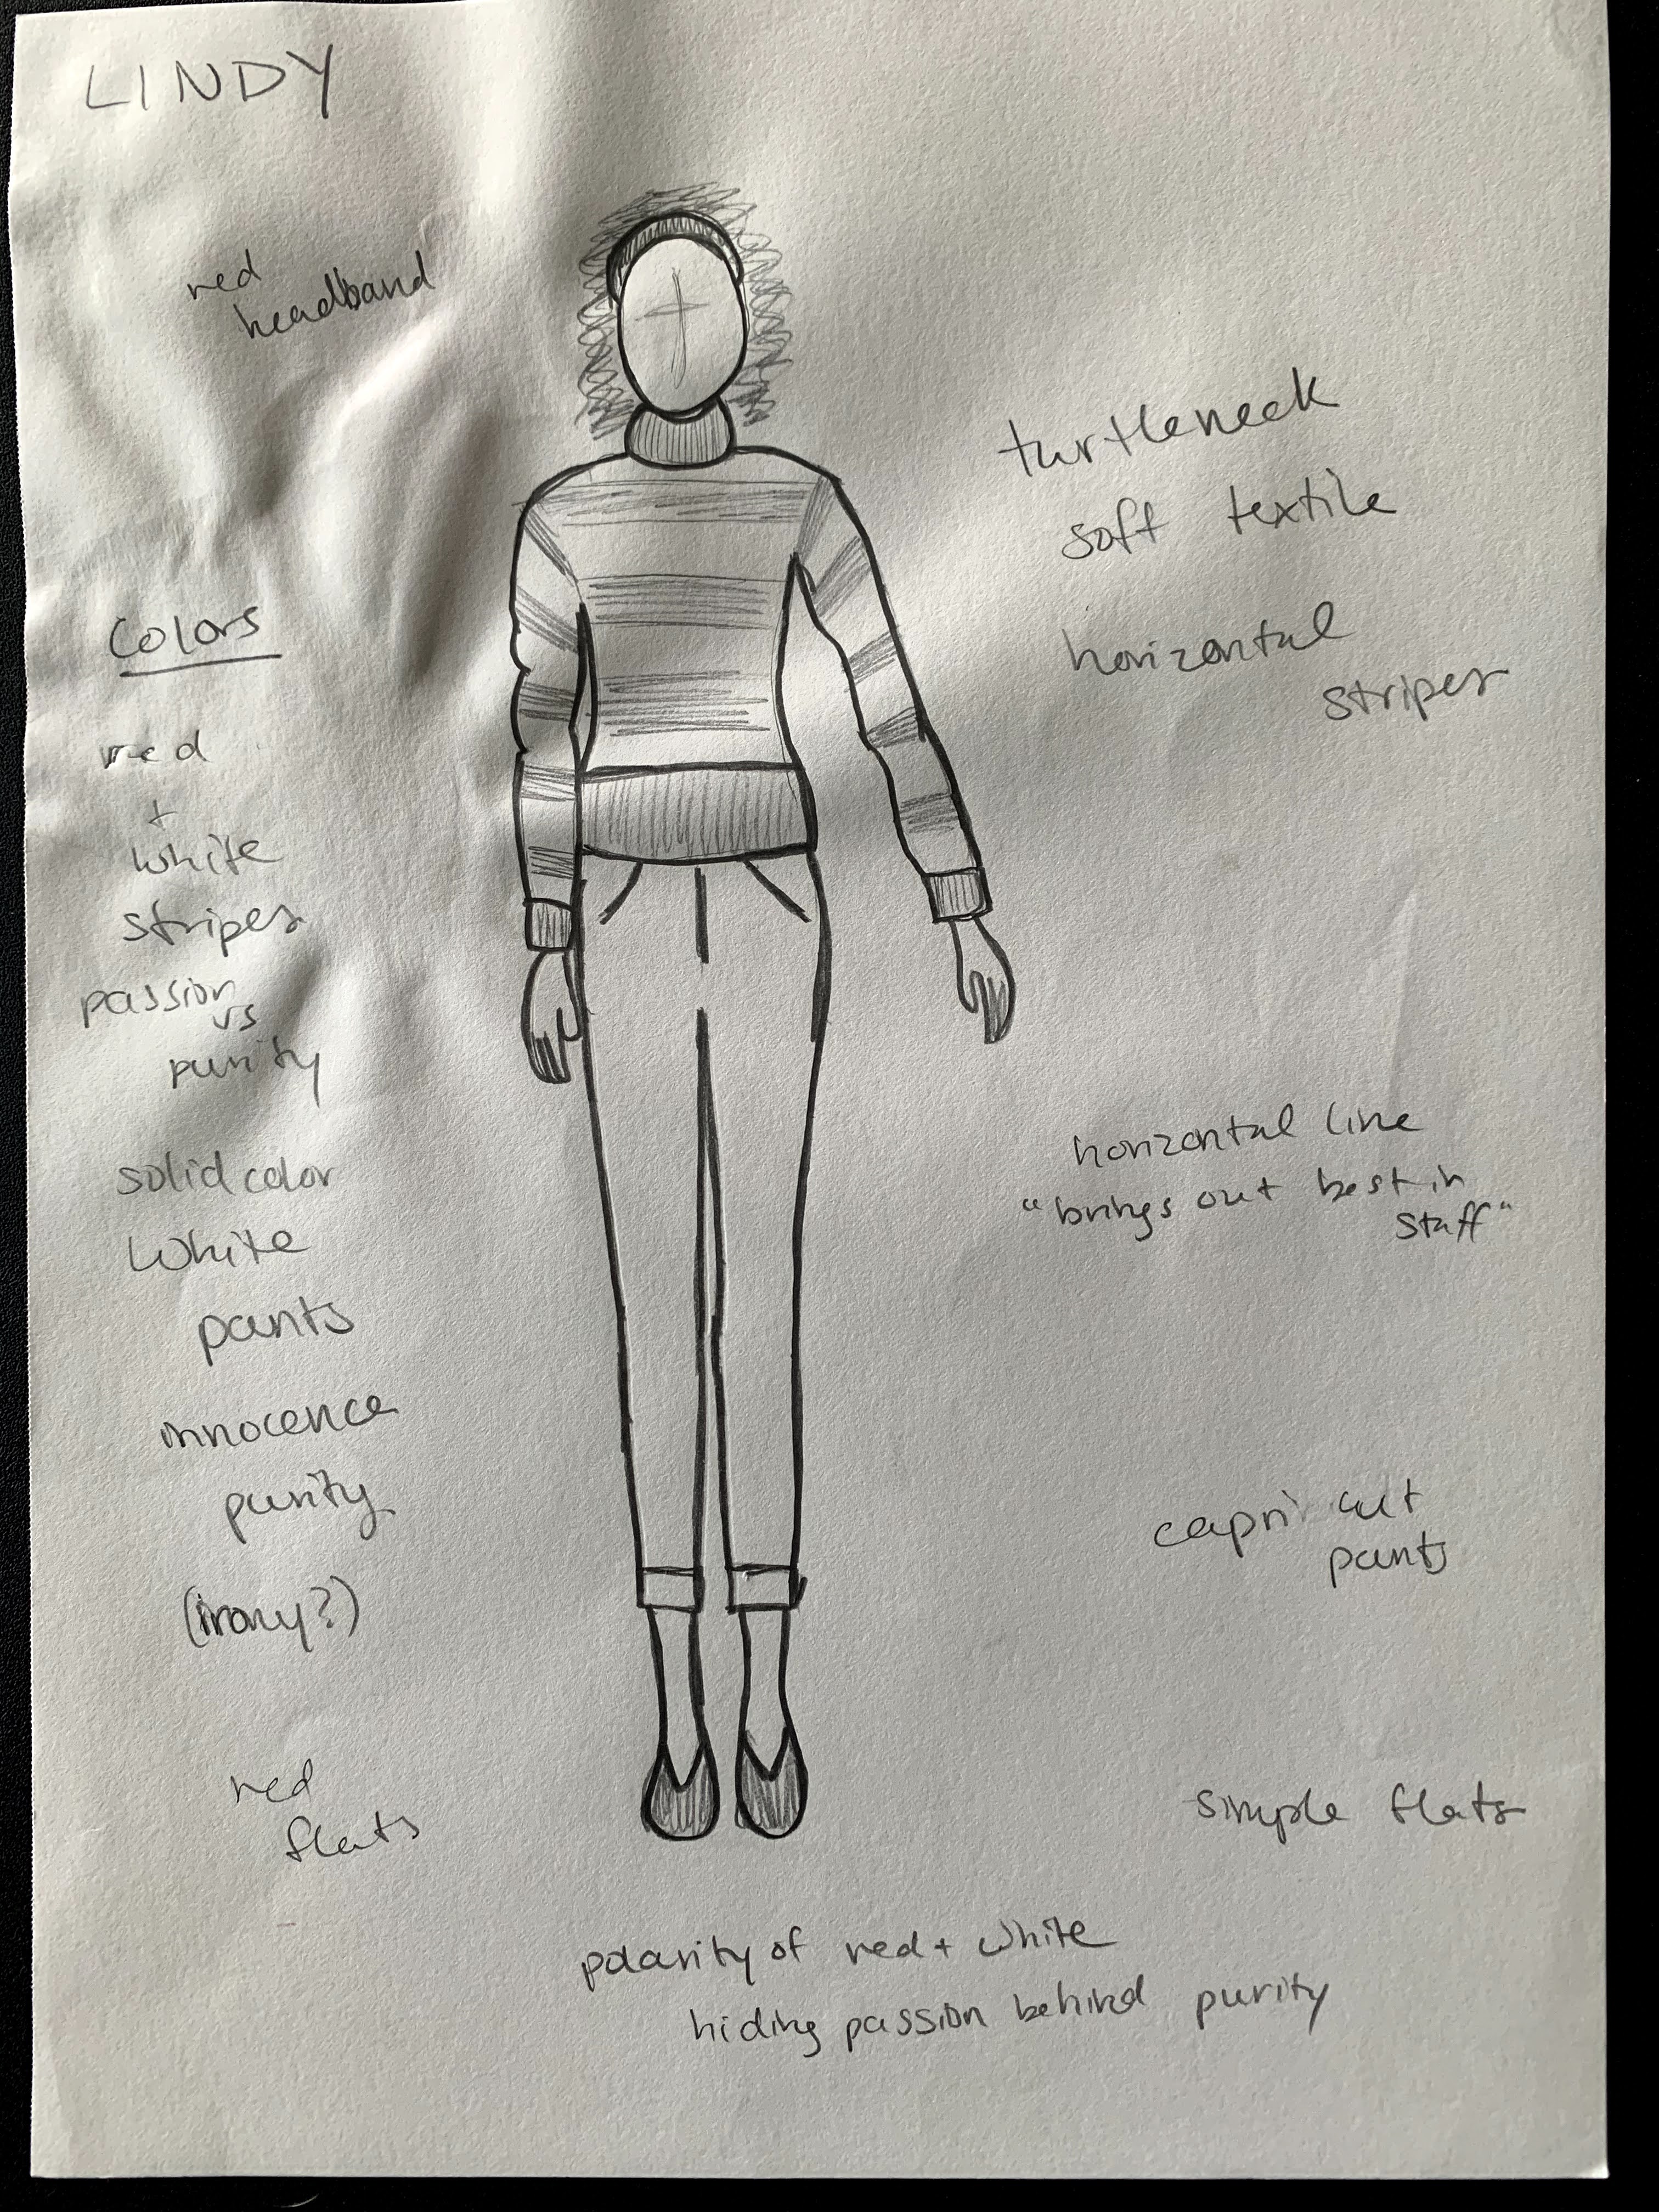 LINDY
red
headband
turtleneck
soft textile
horizontal
stripes
Colors
red
+
white
stripes
passion
vs
purity
solid color
white
pants
innocence
purity
(irony?)
red
flats
horizontal line
"brings out best in
staff"
capri cut
pants
simple flats
polarity of red + white
hiding passion behind purity